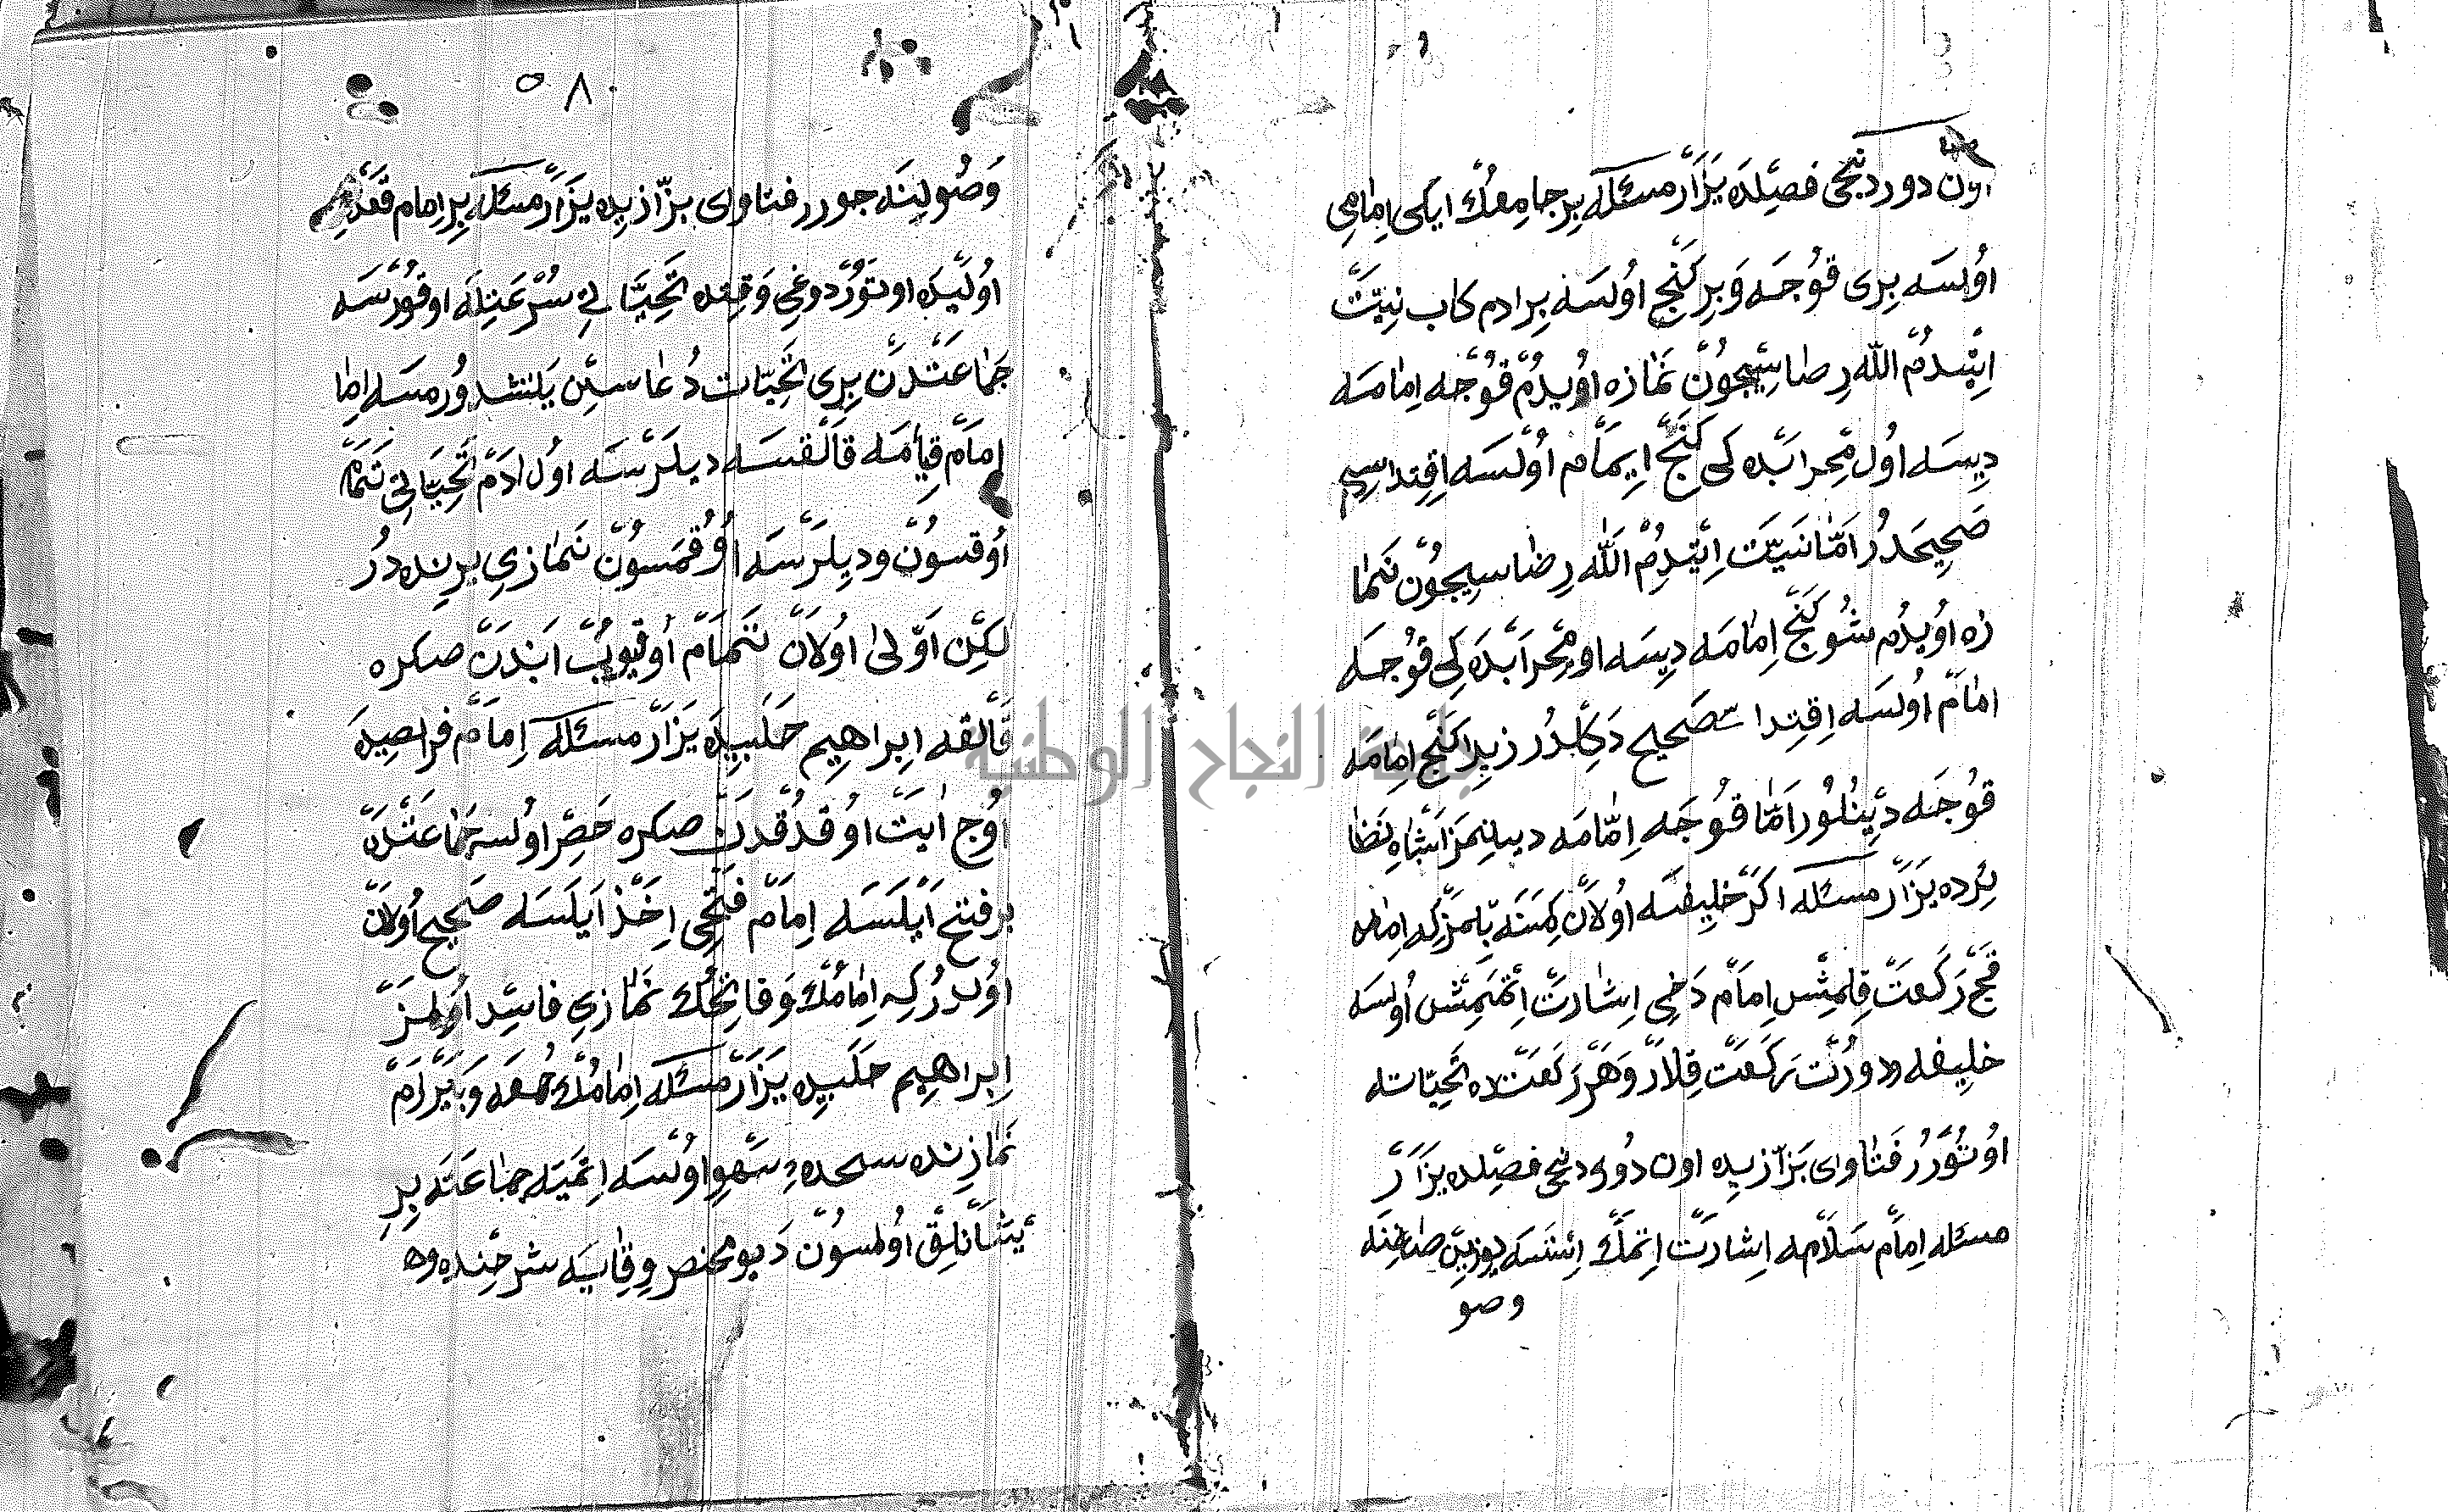 اون دوردنجى فصيلده يزار مسئله بر جامعك ايكى امامى
اولسه برى قوجه و بر كنج اولسه بر ادم كلب نيت
ايتدم الله رضاسيچون نمازه اويدم قوجه امامه
ديسه اول محرابده كى كنج ايمام اولسه اقتداسى
صحيحدر اما نيت ايتدم الله رضاسيچون نما
زه اويدم شو كنج امامه ديسه او محرابده كى قوجه
امام اولسه اقتدا سى صحيح دكلدر زيرا كنج امامه
قوجه دينلور اما قوجه امامه دينمز اشباه نظا
ئرده يزار مسئله اكر خليفه اولان كمسنه بلمز كه امام
قچ ركعت قلمش امام دخى اشارت اتممش اولسه
خليفه دورت ركعت قلار و هر ركعتده تحياته
اوتورر فتاواى بزازيده اون دوردنجى فصلده يزار
مسئله امام سلامه اشارت اتمك استسه يوزين صاغنه
وصو
٥٨
وصولينه جورر فتاواى بزازيده يزار مسئله بر امام قعدۀ
اوليده اوتوردوغى وقتده تحيتا تى سرعتله اوقورسه
جماعتدن برى تحيات دعاسين يتشدورمسه اما
امام قيامه قالقسه ديلرسه اول ادم تحياتى تمام
اوقسون و ديلرسه اوقمسون نمازى يرينده در
لكن اولى اولان تمام اوقيوب اندن صكره
قالقه ابراهيم حلبيده يزار مسئله امام فراصيده
اوج ايت اوقدقدن صكره حصر اولسه جماعتدن
بر فتح ايلسه امام فتحى اخذ ايلسه صحيح اولان
اولدر كه امامك و فاتحك نمازى فاسد اولمز
ابراهيم حلبيده يزار مسئله امامك جمعه و بيرام
نمازنده سجدۀ سهو اولسه اتميه جماعته بر
يشانلق اولمسون ديو مختصر وقايه شرحنده وه